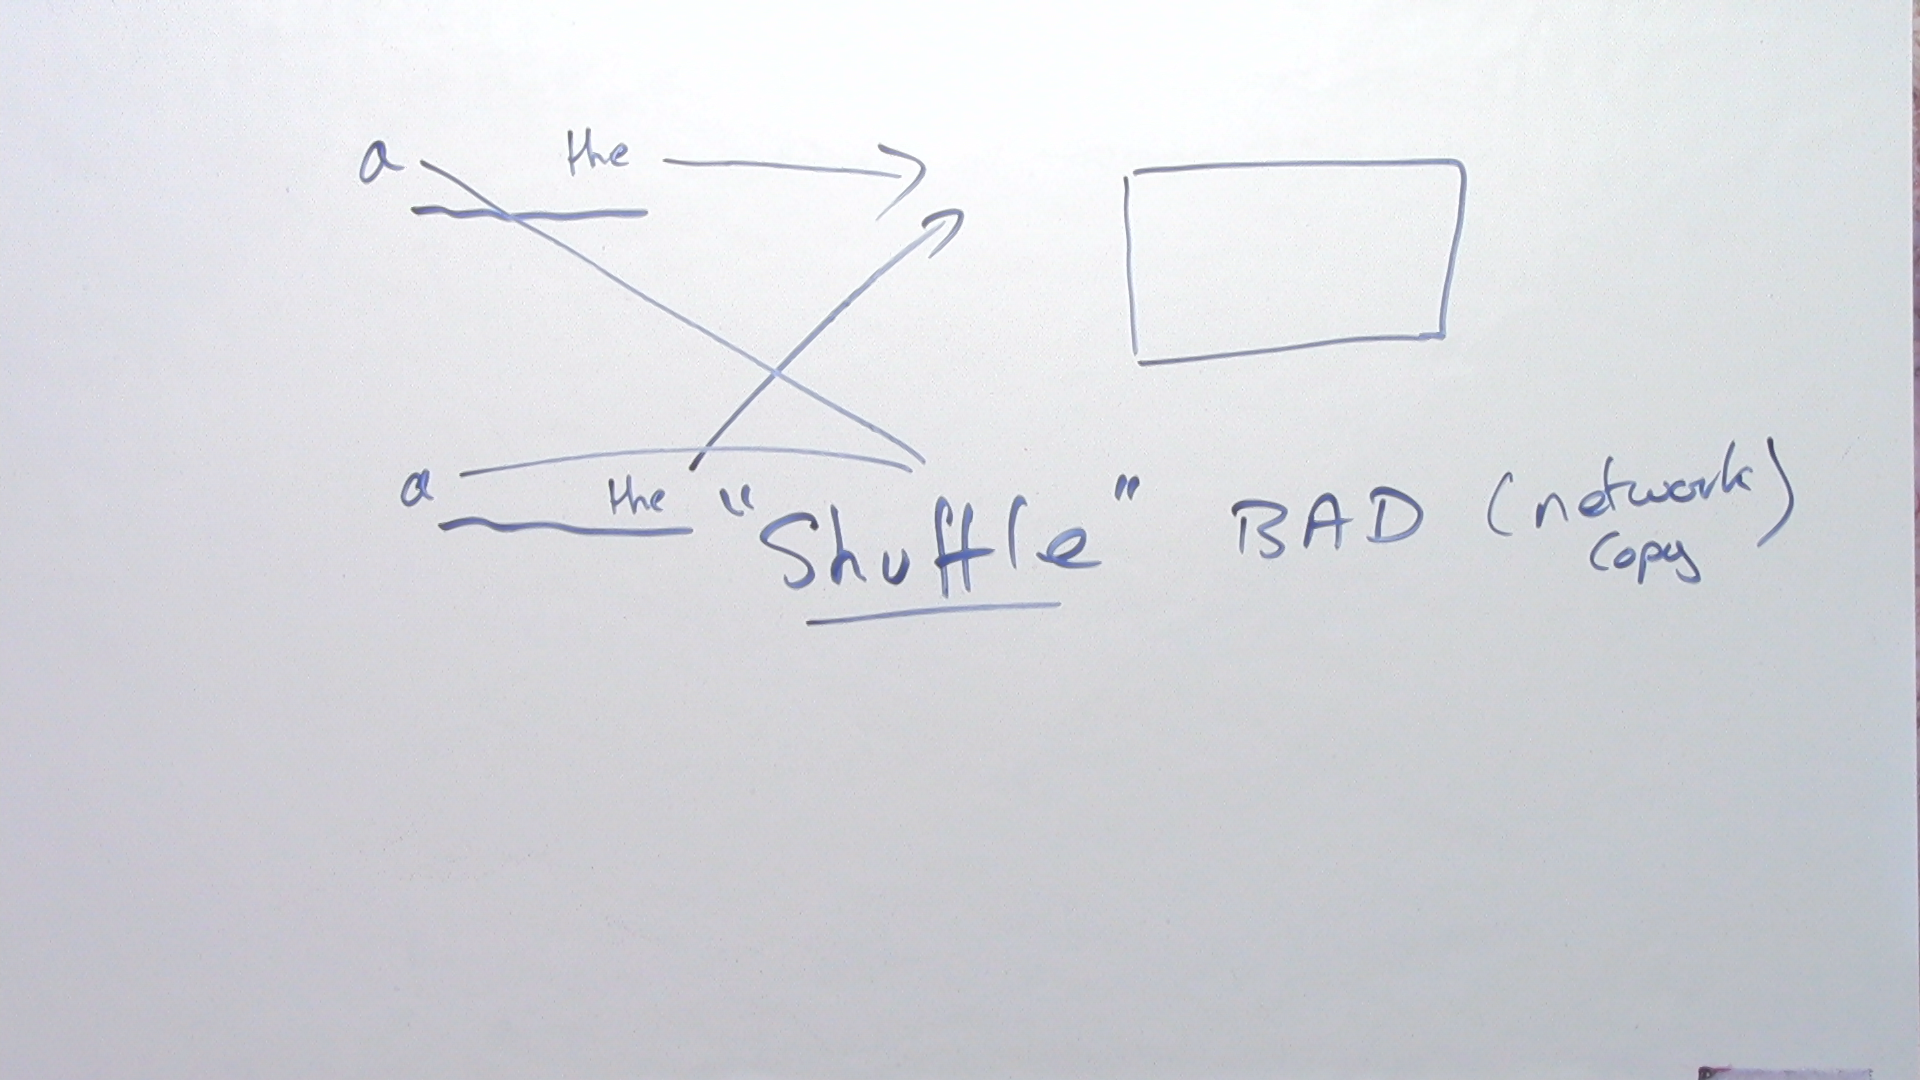 a the
a the "Shuffle" BAD (network)
copy